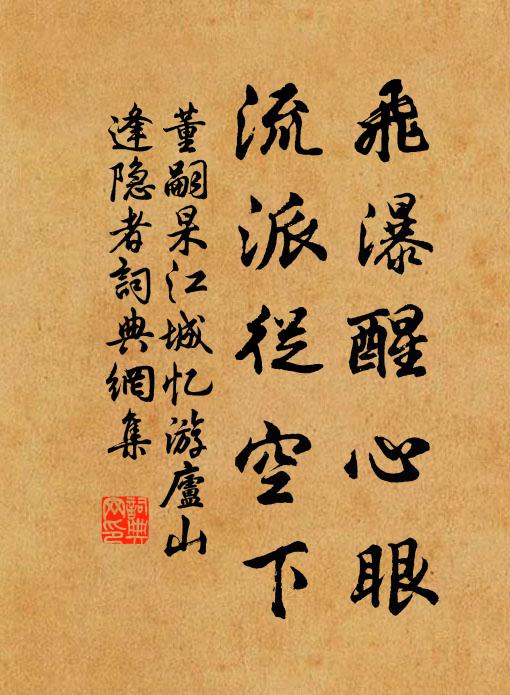 飛瀑醒心眼
流派從空下
董嗣杲江城忆游廬山
逢隐者詞典網集
詞典網印